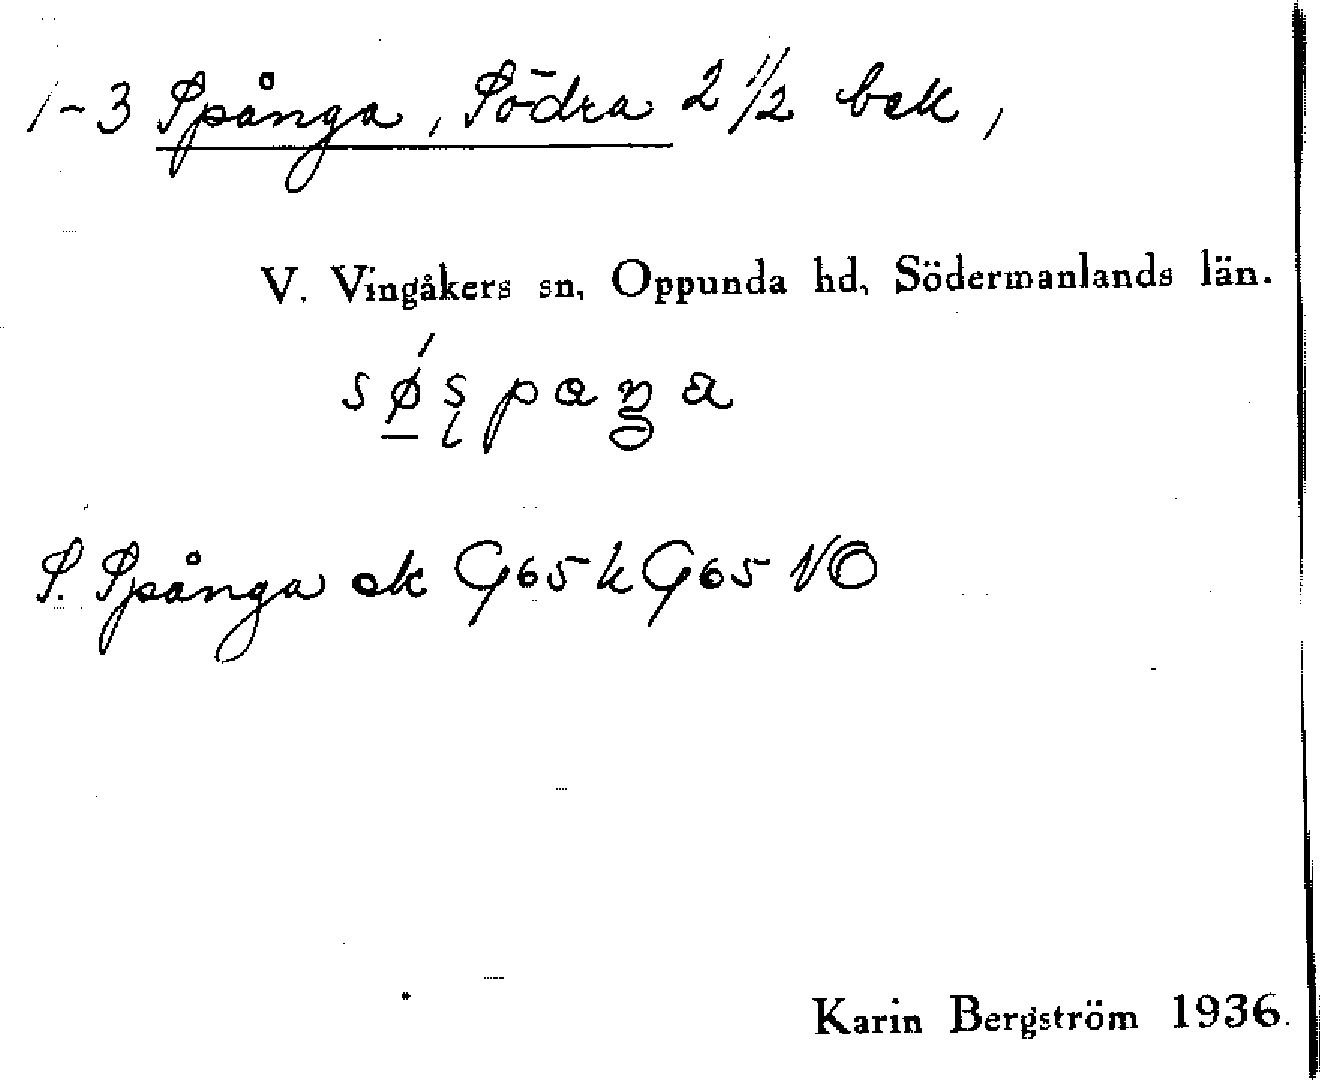 1-3 Spånga, Södra 2 1/2 bek,
V. Vingåkers sn, Oppunda hd, Södermanlands län.
S. Spånga ek G65 k G65 NO
Karin Bergström 1936.